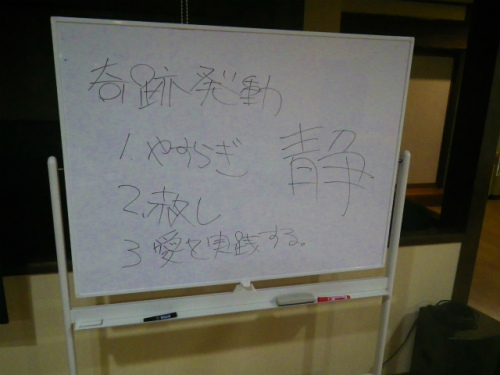 奇跡発動
1.やすらぎ
静
2.赦し
3 愛を実践する。